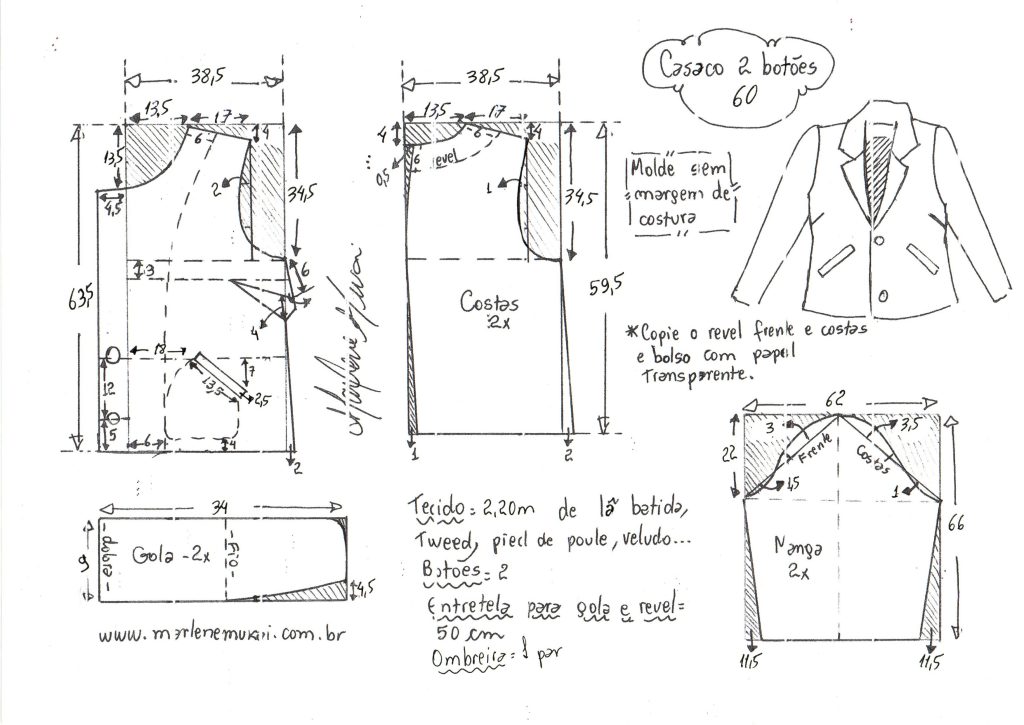 Casaco 2 botões
60
38,5
13,5
17
4
6
13,5
2
34,5
4,5
3
6
4
63,5
18
7
13,5
2,5
12
5
6
4
2
38,5
13,5
17
4
4
6
6
revel
0,5
1
34,5
59,5
Costas
2x
1
2
Molde sem
margem de
costura
*Copie o revel frente e costas
e bolso com papel
Transparente.
62
22
3
3,5
Frente
Costas
1,5
1
66
Manga
2x
11,5
11,5
34
9
-dobra-
Gola - 2x
-Fio-
4,5
www.marlenemukai.com.br
Tecido = 2,20m de lã batida,
Tweed, pied de poule, veludo...
Botões = 2
Entretela para gola e revel =
50 cm
Ombreira = 1 par